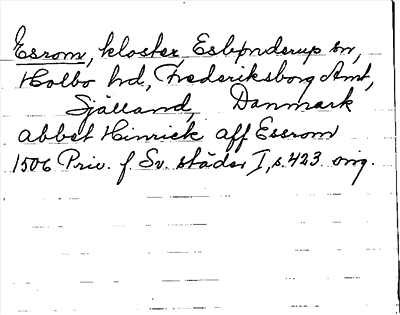 Esrom, kloster, Esbønderup sn,
Holbo hd, Frederiksborg Amt,
Sjælland, Danmark
abbet Hinrick aff Essrom
1506 Priv. f. Sv. städer I, s. 423 orig.